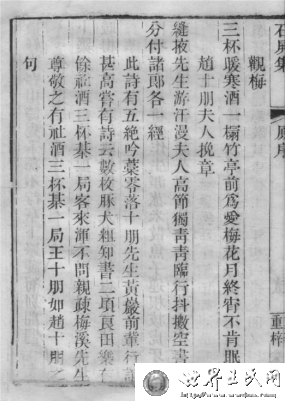 石屏集 原序 重梓
觀梅
三杯暖寒酒一榻竹亭前爲愛梅花月終宵不肯眠
趙十朋夫人挽章
縫掖先生游汗漫夫人高節獨青青臨行抖擻空書
分付諸郎各一經
此詩有五絶吟藁零落十朋先生黃嚴前輩行
甚高嘗有詩云數枚豚犬粗知書二頃良田樂有
餘社酒三杯棊一局客來渾不問親疎梅溪先生
尊敬之有社酒三杯棊一局王十朋如趙十朋之
句
世界王氏网